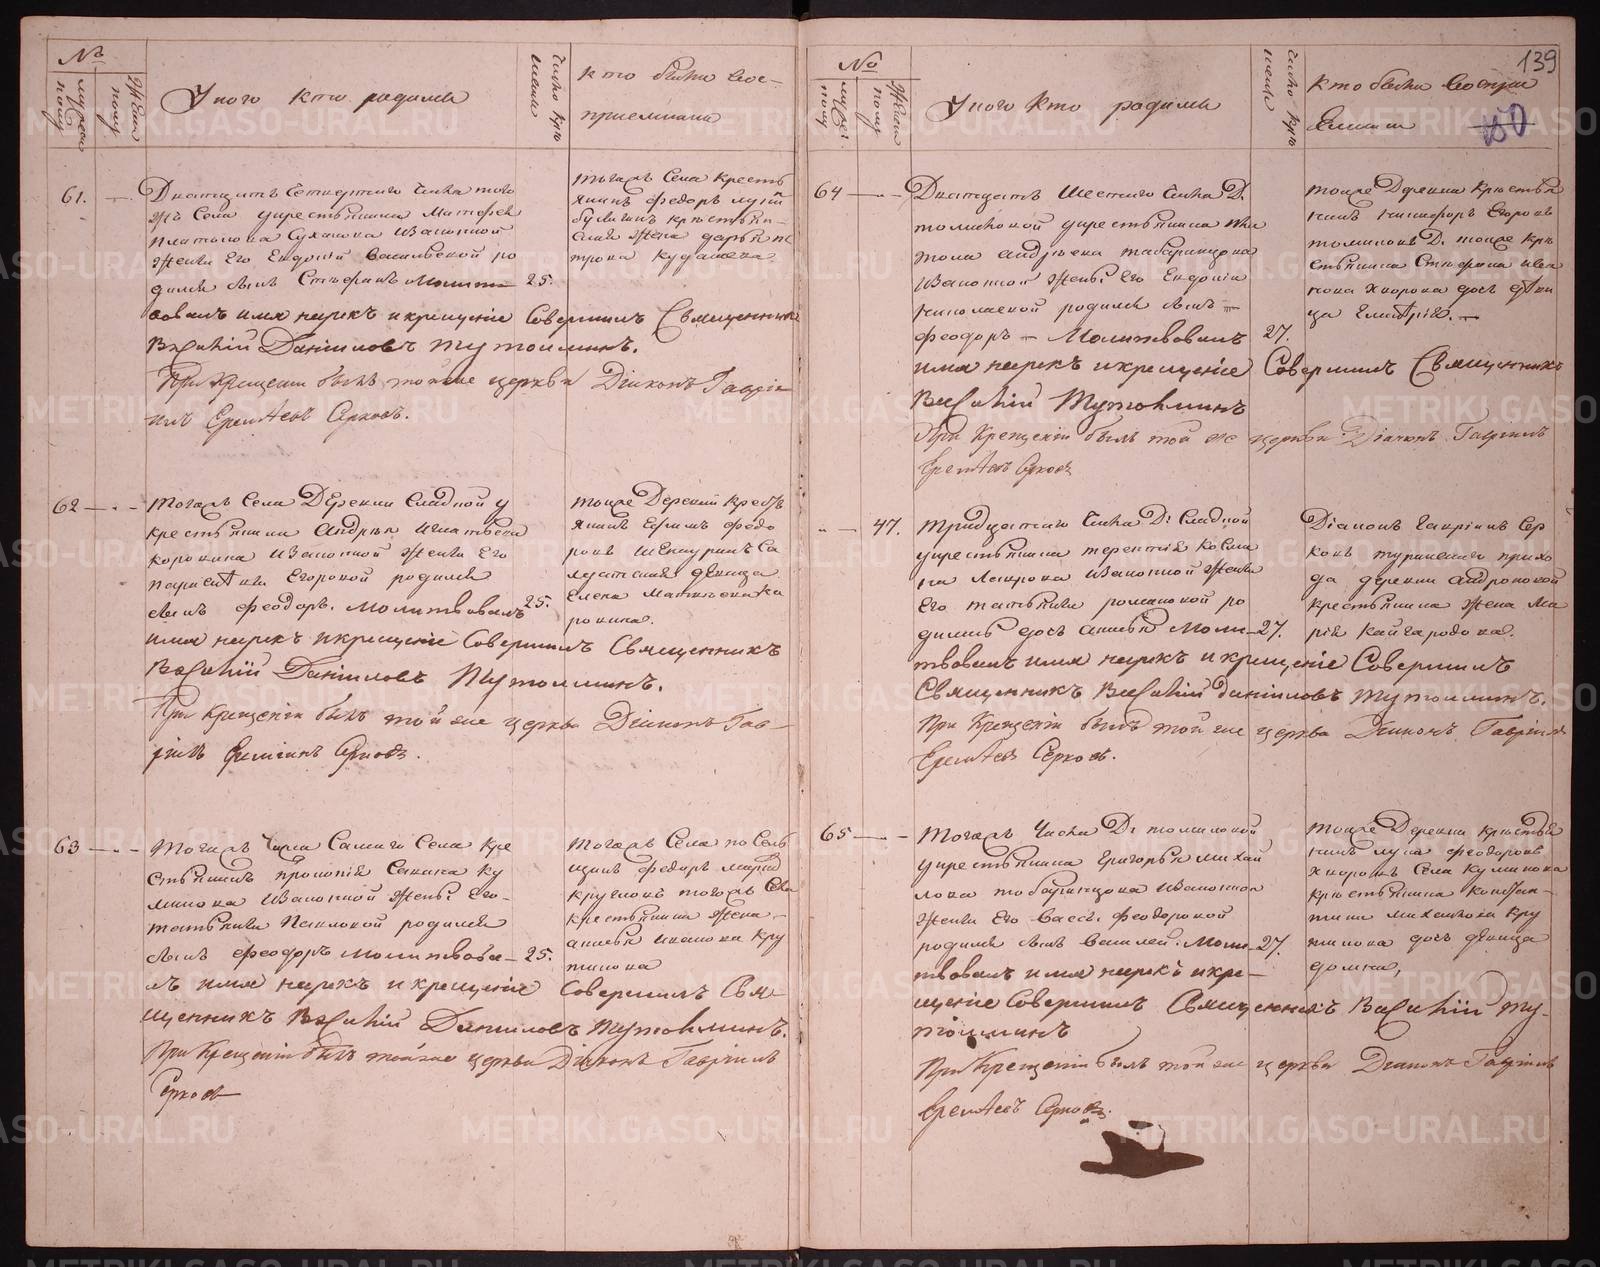 №
мужеск полу
Женск полу
У кого кто родился
число крещения
кто были вос-
приемники
61.
Двадцать четвертого числа того
жъ Села у крестьянина Матфея
Платонова Суханова и законной
жены Его Евдокии Васильевой ро
дился сынъ Стефанъ Молит-
вовалъ имя нарекъ и крещение Совершилъ Священникъ
Василий Данииловъ Тутолминъ.
При Крещении былъ той же церкви Диаконъ Гаврии-
лъ Еремеевъ Серковъ.
25.
тогожъ Села крестъ
янинъ федоръ
крестьян-
жена дарья пе
трова
62
тогожъ Села Деревни Сладкой у
крестьянина андрея игнатьева
коровина и законной жены Его
параскевы Егоровой родился
сынъ феодоръ. Молитвовалъ
имя нарекъ и крещение Совершилъ Священникъ
Василий Данииловъ Тутолминъ.
При Крещении былъ той же церкви Диаконъ Гав-
риилъ Серковъ.
25.
тоже Деревни крест
янинъ Ефимъ федо
ровъ
девица
Елена Матвеева Ко
ровина.
63
Тогожъ Числа Самаго Села кре
стьянинъ прокопия Савина ку
ликова и законной жены Его
татьяны Павловой родился
сынъ феодоръ Молитвова-
лъ имя нарекъ и крещение Совершилъ Свя-
щенникъ Василий Данииловъ Тутолминъ.
При Крещении былъ той же церкви Диаконъ Гавриилъ
Серковъ
25.
тогожъ Села по Сель
щикъ федоръ
кругловъ тогожъ Села
крестьянина жена
анисья иванова кру
глова
139
№
мужес. полу
Женск полу
У кого кто родился
число крещения
кто были воспри
емники
64
Двадцать Шестого числа Д.
томиловой у крестьянина
андреева табаринцова
и законной жены Его Евдокии
Николаевой родился сынъ
феодоръ - Молитвовалъ
имя нарекъ и крещение Совершилъ Священникъ
Василий Тутолминъ
При Крещении былъ той же церкви Диаконъ Гавриилъ
Еремеевъ Серковъ
27.
тоже Деревни крестья
нинъ никифоръ Егоровъ
томиловъ Д. тоже кре
стьянина Стефана ива
нова хворова дочь деви
ца
47.
Тридцатого числа Д. Сладкой
у крестьянина терентия Козми
на Лаврова и законной жены
Его татьяны романовой ро
дилась дочь анисья Моли-
твовалъ имя нарекъ и крещение Совершилъ
Священникъ Василий Данииловъ Тутолминъ.
При Крещении былъ той же церкви Диаконъ Гавриилъ
Еремеевъ Серковъ.
27.
Диаконъ гавриилъ Сер
ковъ туринскаго прихо
да деревни андроновой
крестьянина жена Ма
рия Кайгародова.
65
Тогожъ Числа Д. томиловой
у крестьянина григорья михай
лова табаринцова и законной
жены Его вассы феодоровой
родился сынъ василей. Моли-
твовалъ имя нарекъ и кре-
щение Совершилъ Священникъ Василий Ту-
толминъ
При Крещении былъ той же церкви Диаконъ Гавриилъ
Еремеевъ Серковъ.
27.
тоже Деревни крестья
нинъ лука феодоровъ
хворовъ Села куликова
крестьянина констан-
тина михайлова кру
глова дочь девица
домна,
METRIKI.GASO-URAL.RU